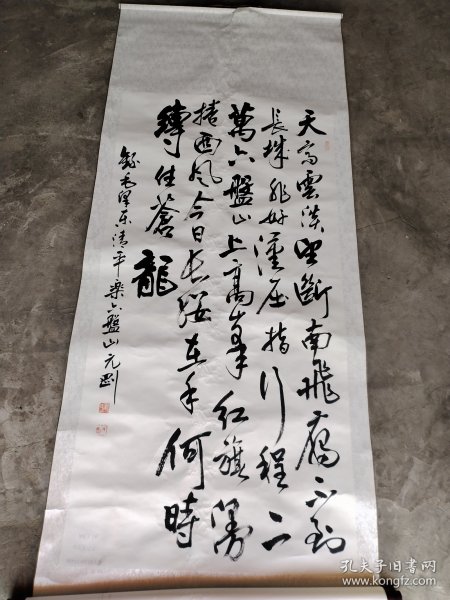 天高雲淡望斷南飛雁不到
長城非好漢屈指行程二
萬六盤山上高峯紅旗漫
捲西风今日长缨在手何時
縛住蒼龍
錄毛泽东清平楽六盤山元剛
孔夫子旧书网
www.kongfz.com